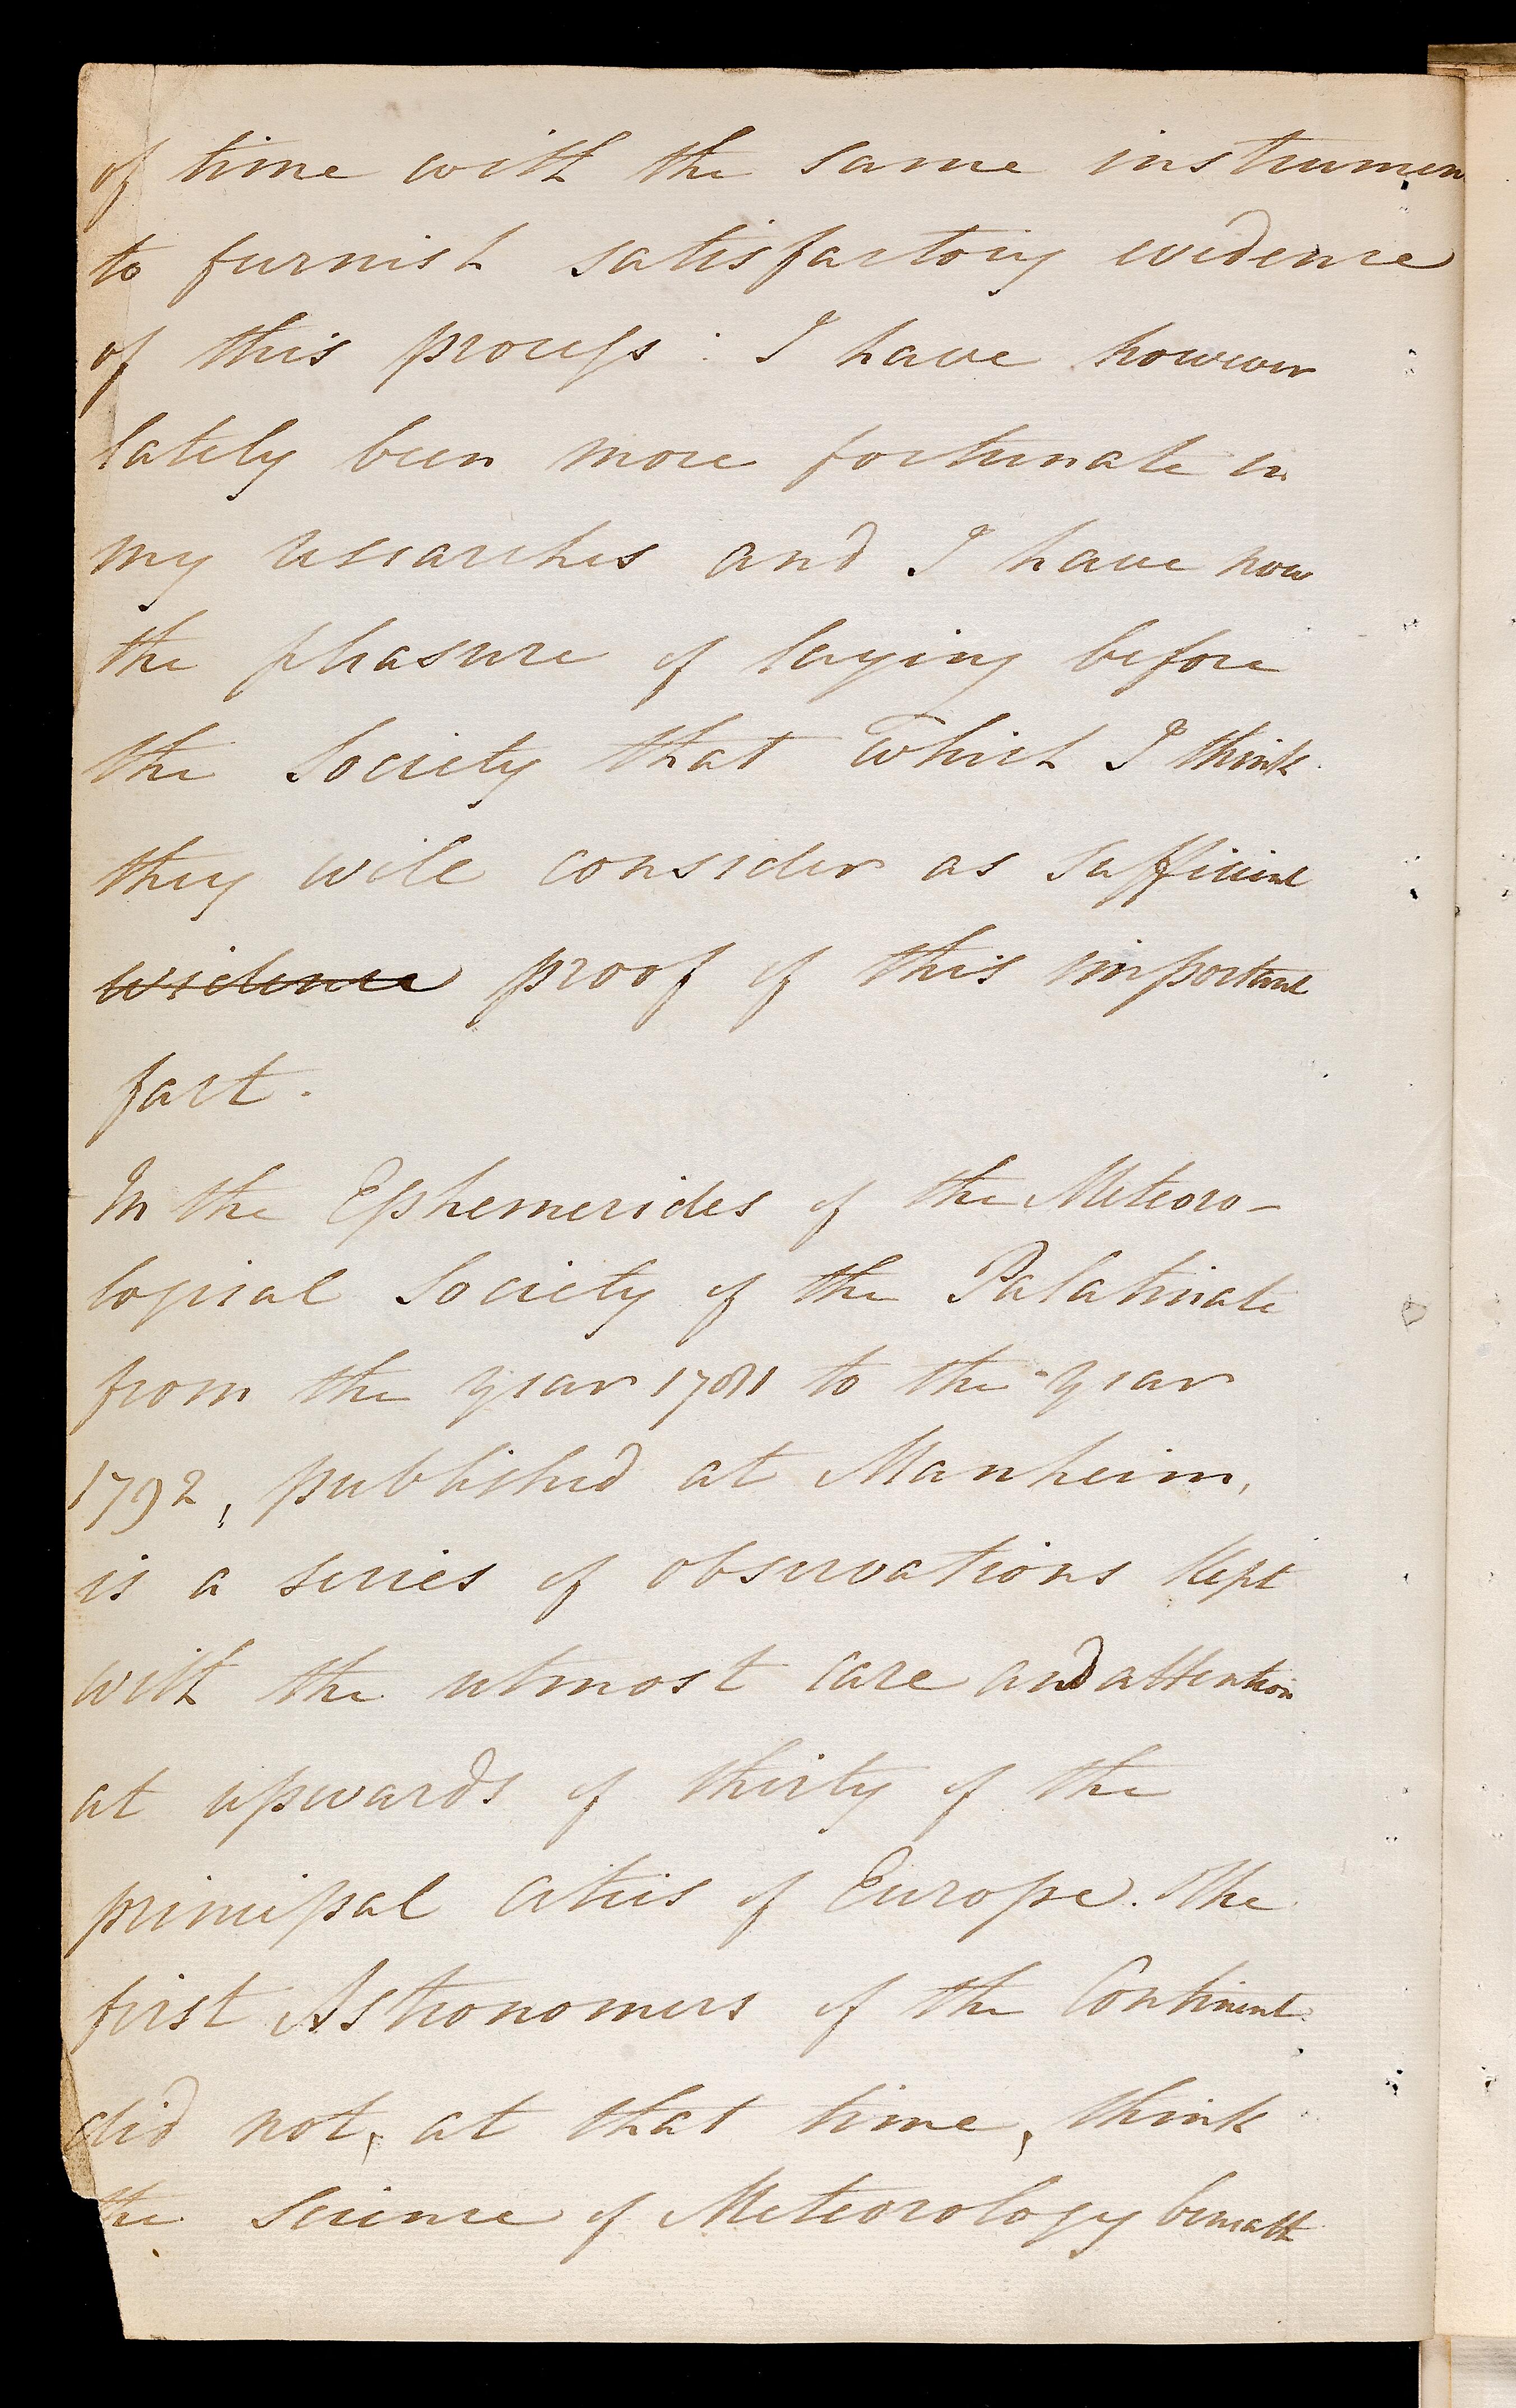 of time with the same instrumen
to furnish satisfactory evidence
of this process : I have however
lately been more fortunate in
my researches and I have now
the pleasure of laying before
the Society that which I think
they will consider as sufficient
evidence proof of this important
fact.
In the Ephemerides of the Meteoro-
logical Society of the Palatinate
from the year 1781 to the year
1792, published at Manheim,
is a series of observations kept
with the utmost care and attention
at upwards of thirty of the
principal cities of Europe. The
first Astronomers of the Continent
did not, at that time, think
the Science of Meteorology beneath